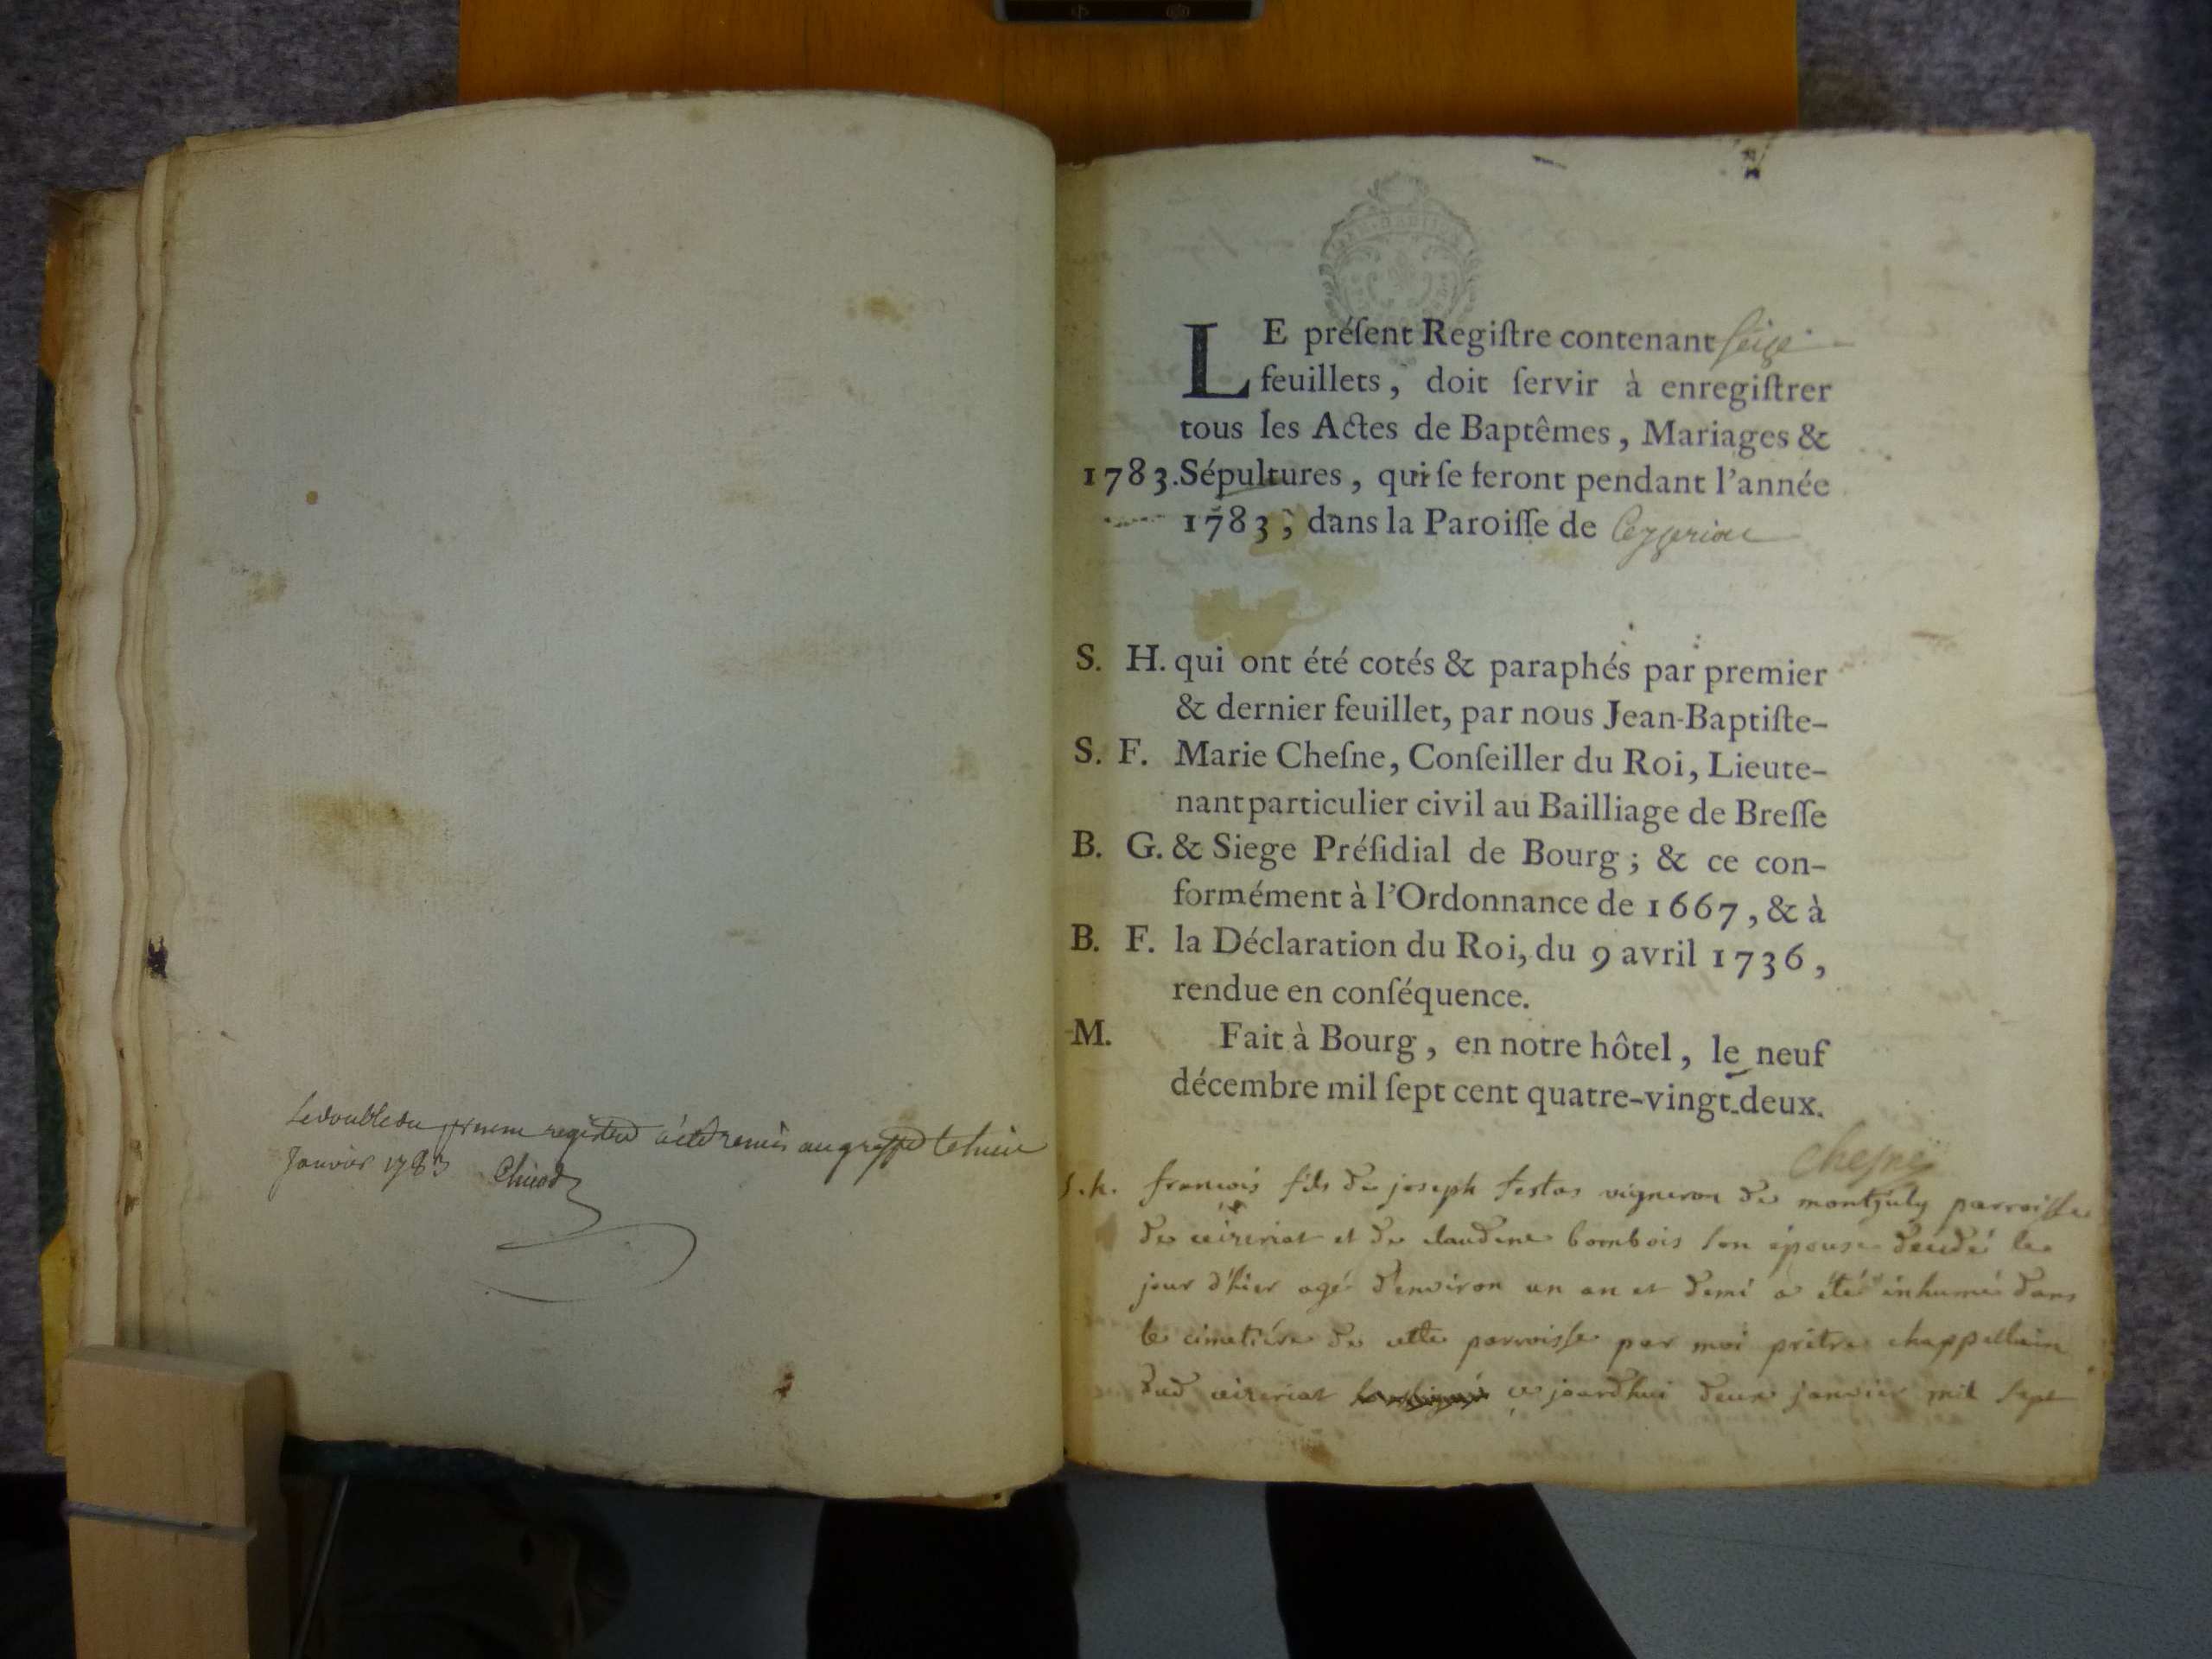 Le double du present registre a été remis au greffe le huit
Janvier 1783 Chicod
LE préſent Regiſtre contenant ſeize
feuillets, doit ſervir à enregiſtrer
tous les Actes de Baptêmes, Mariages &
1783. Sépultures, qui ſe feront pendant l'année
1783, dans la Paroiſſe de Ceyzeriat
S. H. qui ont été cotés & paraphés par premier
& dernier feuillet, par nous Jean-Baptiſte-
S. F. Marie Cheſne, Conſeiller du Roi, Lieute-
nant particulier civil au Bailliage de Breſſe
B. G. & Siege Préſidial de Bourg; & ce con-
formément à l'Ordonnance de 1667, & à
B. F. la Déclaration du Roi, du 9 avril 1736,
rendue en conſéquence.
M. Fait à Bourg, en notre hôtel, le neuf
décembre mil ſept cent quatre-vingt-deux.
Cheſne
S. h. francois fils de joseph festas vigneron de montjuly parroisse
de ceizeriat et de claudine bombois son épouse décédé le
jour d'hier agé d'environ un an et demi a été inhumé dans
le cimetiére de cette parroisse par moi prêtre chappellain
dud ceizeriat ce jourdhui deux janvier mil sept